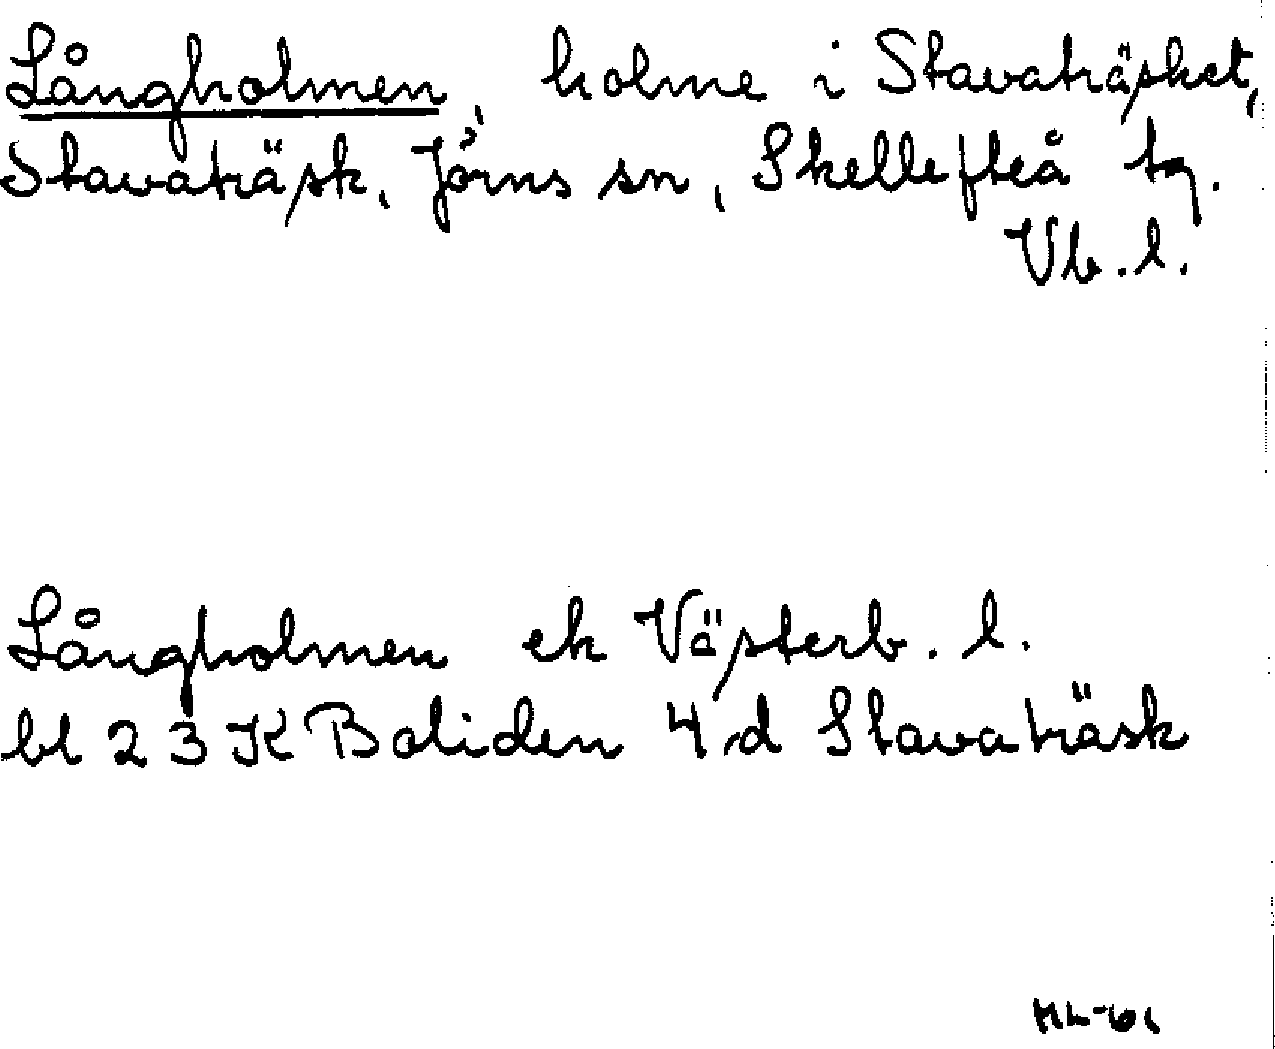 Långholmen, holme i Stavaträsket,
Stavaträsk, Jörns sn, Skellefteå tg.
Vb.l.
Långholmen ek Västerb. l.
bl 23K Boliden 4d Stavaträsk
ML-61